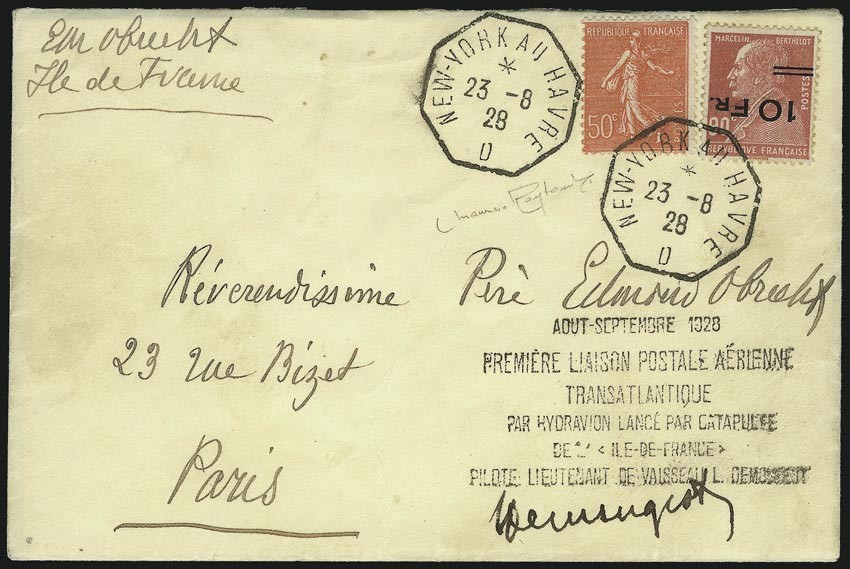 Em Obrecht
Ile de France
NEW-YORK AU HAVRE
*
23 -8
28
D
REPUBLIQUE FRANÇAISE
50c
POSTES
MARCELIN BERTHELOT
POSTES
10 FR.
90c
REPUBLIQUE FRANÇAISE
NEW-YORK AU HAVRE
*
23 -8
28
D
Réverendissime Père Edmond Obrecht
23 rue Bizet
Paris
AOUT-SEPTEMBRE 1928
PREMIÈRE LIAISON POSTALE AÉRIENNE
TRANSATLANTIQUE
PAR HYDRAVION LANCÉ PAR CATAPULTE
DE L' < ILE-DE-FRANCE>
PILOTE: LIEUTENANT DE VAISSEAU L. DEMOUGEOT
Demougeot